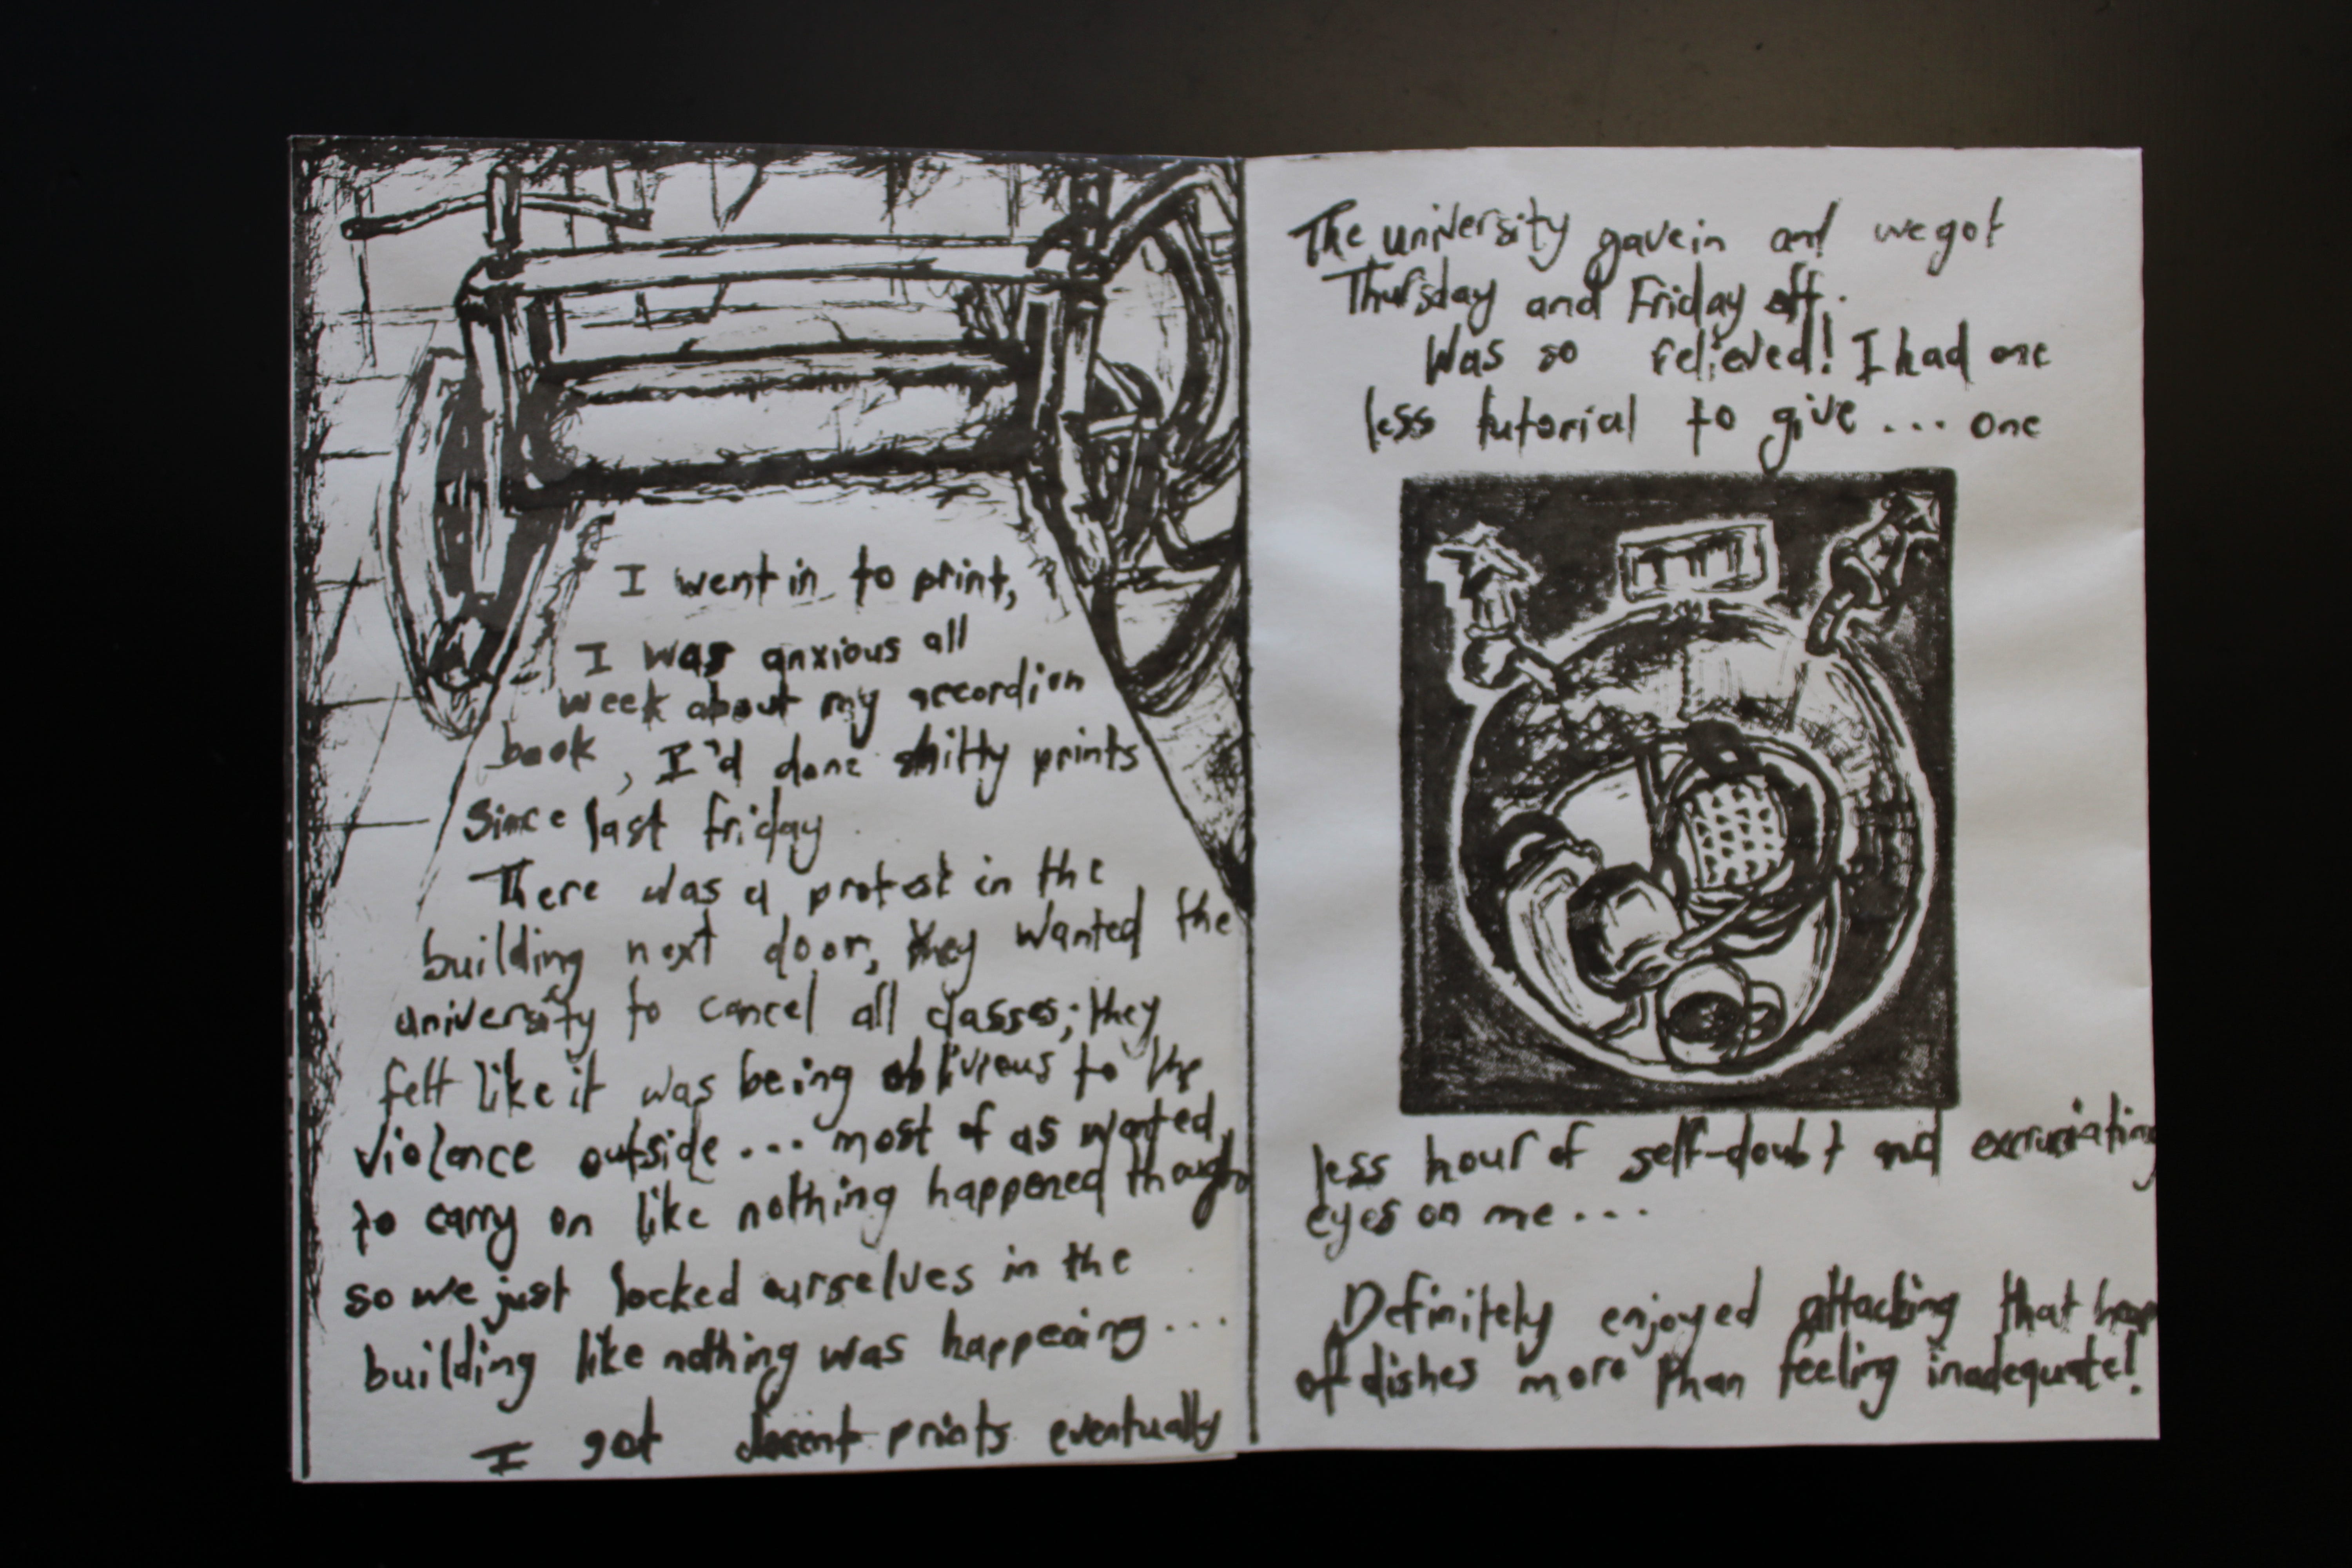 I went in to print,
I was anxious all
week about my accordion
book, I'd done shitty prints
since last friday.
There was a protest in the
building next door, they wanted the
university to cancel all classes; they
felt like it was being oblivious to the
violence outside... most of as wanted
to carry on like nothing happened though
so we just locked ourselves in the
building like nothing was happening...
I got decent prints eventually
The university gave in and we got
Thursday and Friday off.
Was so relieved! I had one
less tutorial to give... one
less hour of self-doubt and excruciating
eyes on me...
Definitely enjoyed attacking that heap
of dishes more than feeling inadequate!